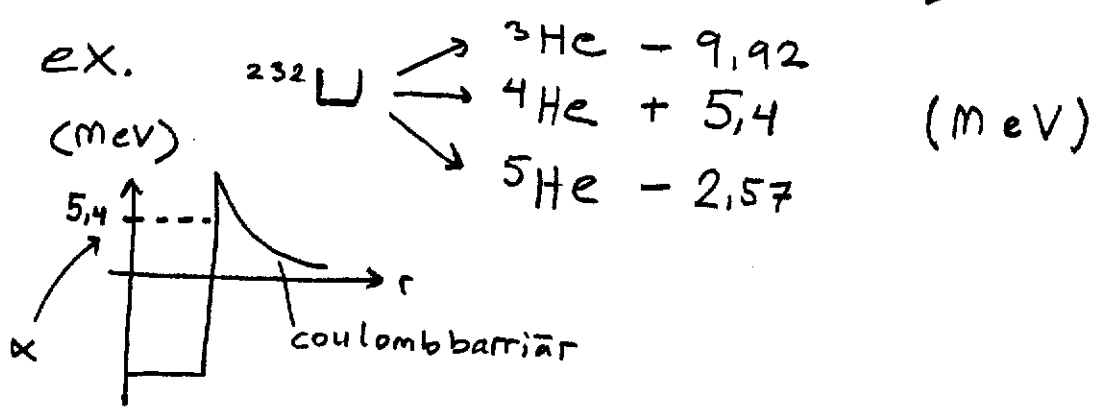 ex.
²³²U
³He - 9,92
⁴He + 5,4
⁵He - 2,57
(MeV)
(MeV)
5,4
r
α
coulombbarriär